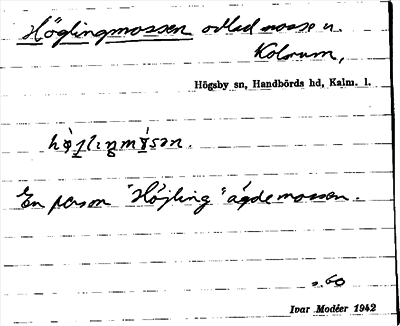 Höglingmossen odlad mosse v.
Kolsrum,
Högsby sn, Handbörds hd, Kalm. l.
En person "Höjling" ägde mossen.
s. 60
Ivar Modéer 1942